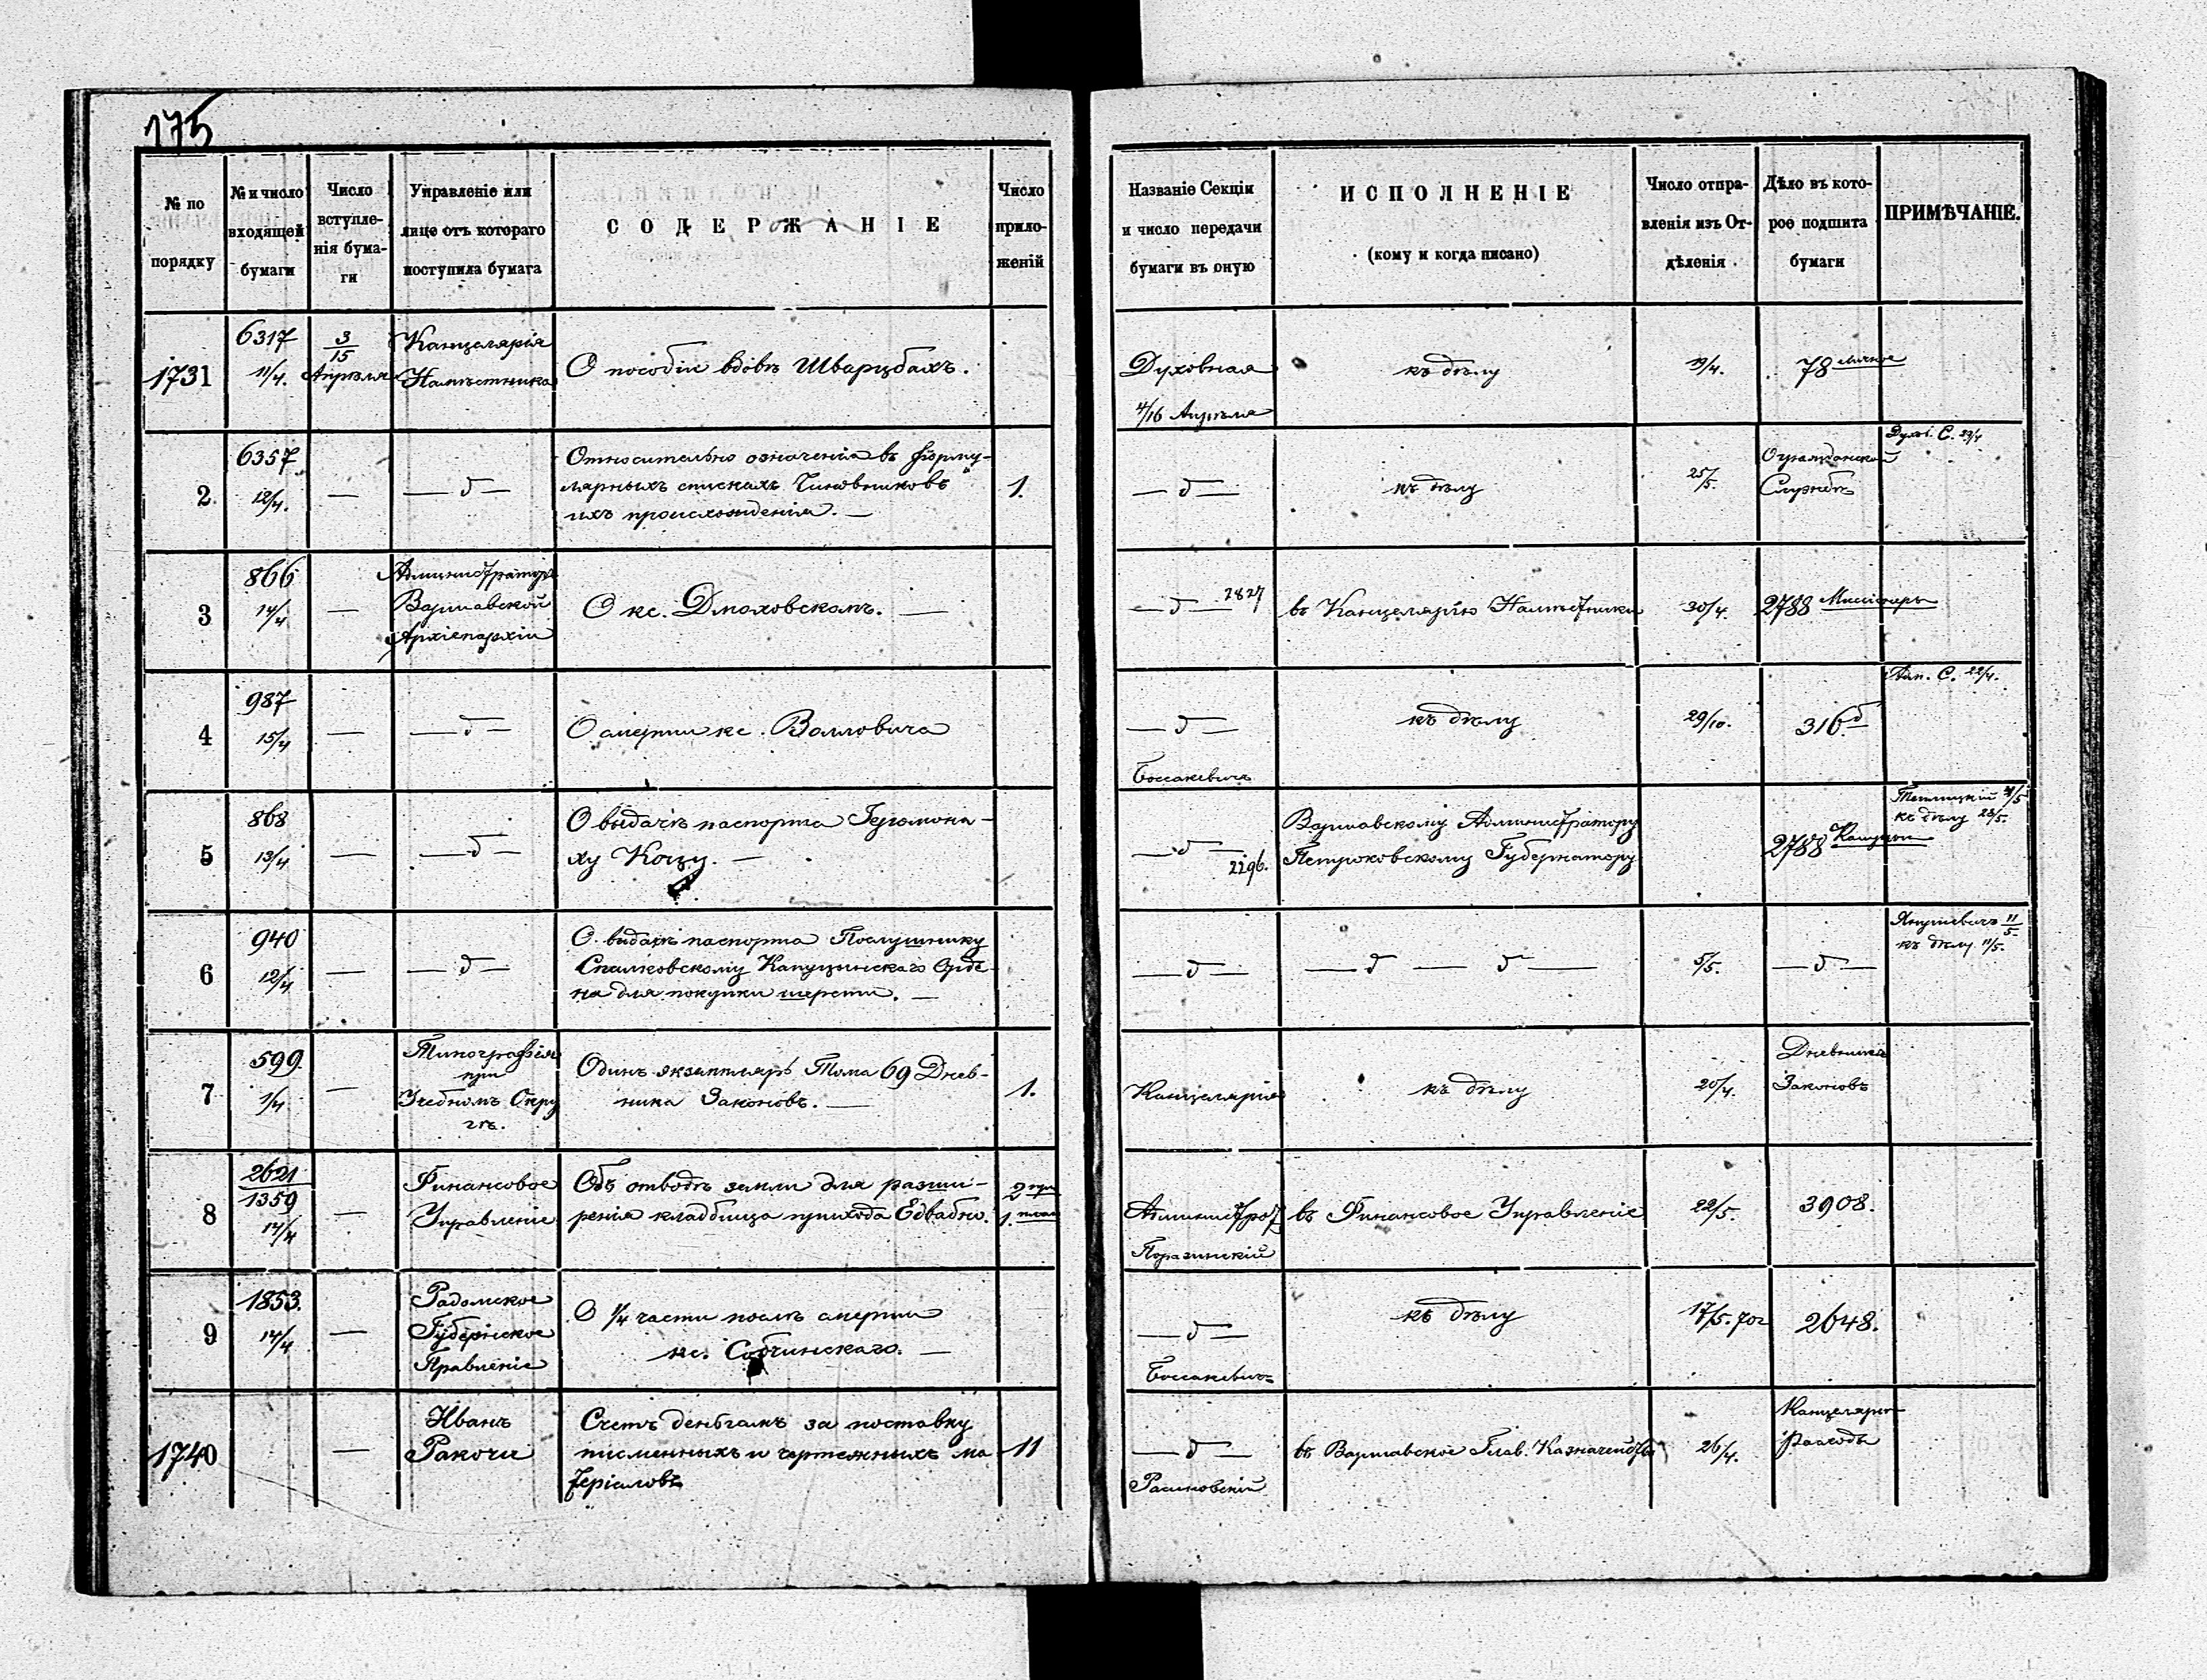 175
№ по
порядку
№ и число
входящей
бумаги
Число
вступле-
нія бума-
ги
Управленіе или
лице отъ котораго
поступила бумага
СОДЕРЖАНІЕ
Число
прило-
женій
Названіе Секціи
и число передачи
бумаги въ оную
ИСПОЛНЕНІЕ
(кому и когда писано)
Число отпра-
вленія изъ От-
дѣленія
Дѣло въ кото-
рое подшита
бумаги
ПРИМѢЧАНІЕ.
1731
6317
11/4.
3/15
Апрѣля
Канцелярія
Намѣстника
О пособіи вдовѣ Шварцбахъ.
Духовная
4/16 Апрѣля
къ дѣлу
19/4.
78 личное
2
6357
12/4.
—
— д —
Относительно означенія въ форму-
лярныхъ спискахъ Чиновниковъ
ихъ происхожденія. —
1.
— д —
къ дѣлу
25/5.
О гражданской
Службѣ
Духв. С. 23/4
3
866
14/4
—
Администраторъ
Варшавской
Архіепархіи
О кс. Дмоховскомъ. —
— д — 2827
въ Канцелярію Намѣстника
30/4.
2788 Миссіонеры
4
987
15/4
—
— д —
О смерти кс. Волловича
— д —
Боссакевичъ
къ дѣлу
29/10.
316 д
С. 22/4.
5
868
13/4
—
— д —
О выдачѣ паспорта Іеромона-
ху Коцу. —
— д —
2296.
Варшавскому Администратору
Петроковскому Губернатору
2788 Капуцын
къ дѣлу 23/5.
6
940
12/4
—
— д —
О выдачѣ паспорта Послушнику
Спалковскому Капуцынскаго Орде-
на для покупки шерсти. —
— д —
— д — д —
5/5.
— д —
Янушевичъ 11/5.
къ дѣлу 11/5.
7
599.
1/4
—
Типографія
при
Учебномъ Окру
гѣ.
Одинъ экземпляръ Тома 69 Днев-
ника Законовъ. —
1.
Канцелярія
къ дѣлу
20/4.
Дневника
Законовъ
8
2621
1359
14/4
—
Финансовое
Управленіе
Объ отводѣ земли для расши-
ренія кладбища прихода Едвабно.
2
1. план
Администрат
въ Финансовое Управленіе
22/5.
3908.
9
1853.
14/4
—
Радомское
Губернское
Правленіе
О 1/4 части послѣ смерти
кс. Собчинскаго. —
— д —
Боссакевичъ
къ дѣлу
17/5. 70г
2648.
1740
—
Иванъ
Ракочи
Счетъ деньгамъ за поставку
писменныхъ и чертежныхъ ма
теріаловъ
11
— д —
въ Варшавское Глав. Казначейство
26/4.
Канцелярск
расходы